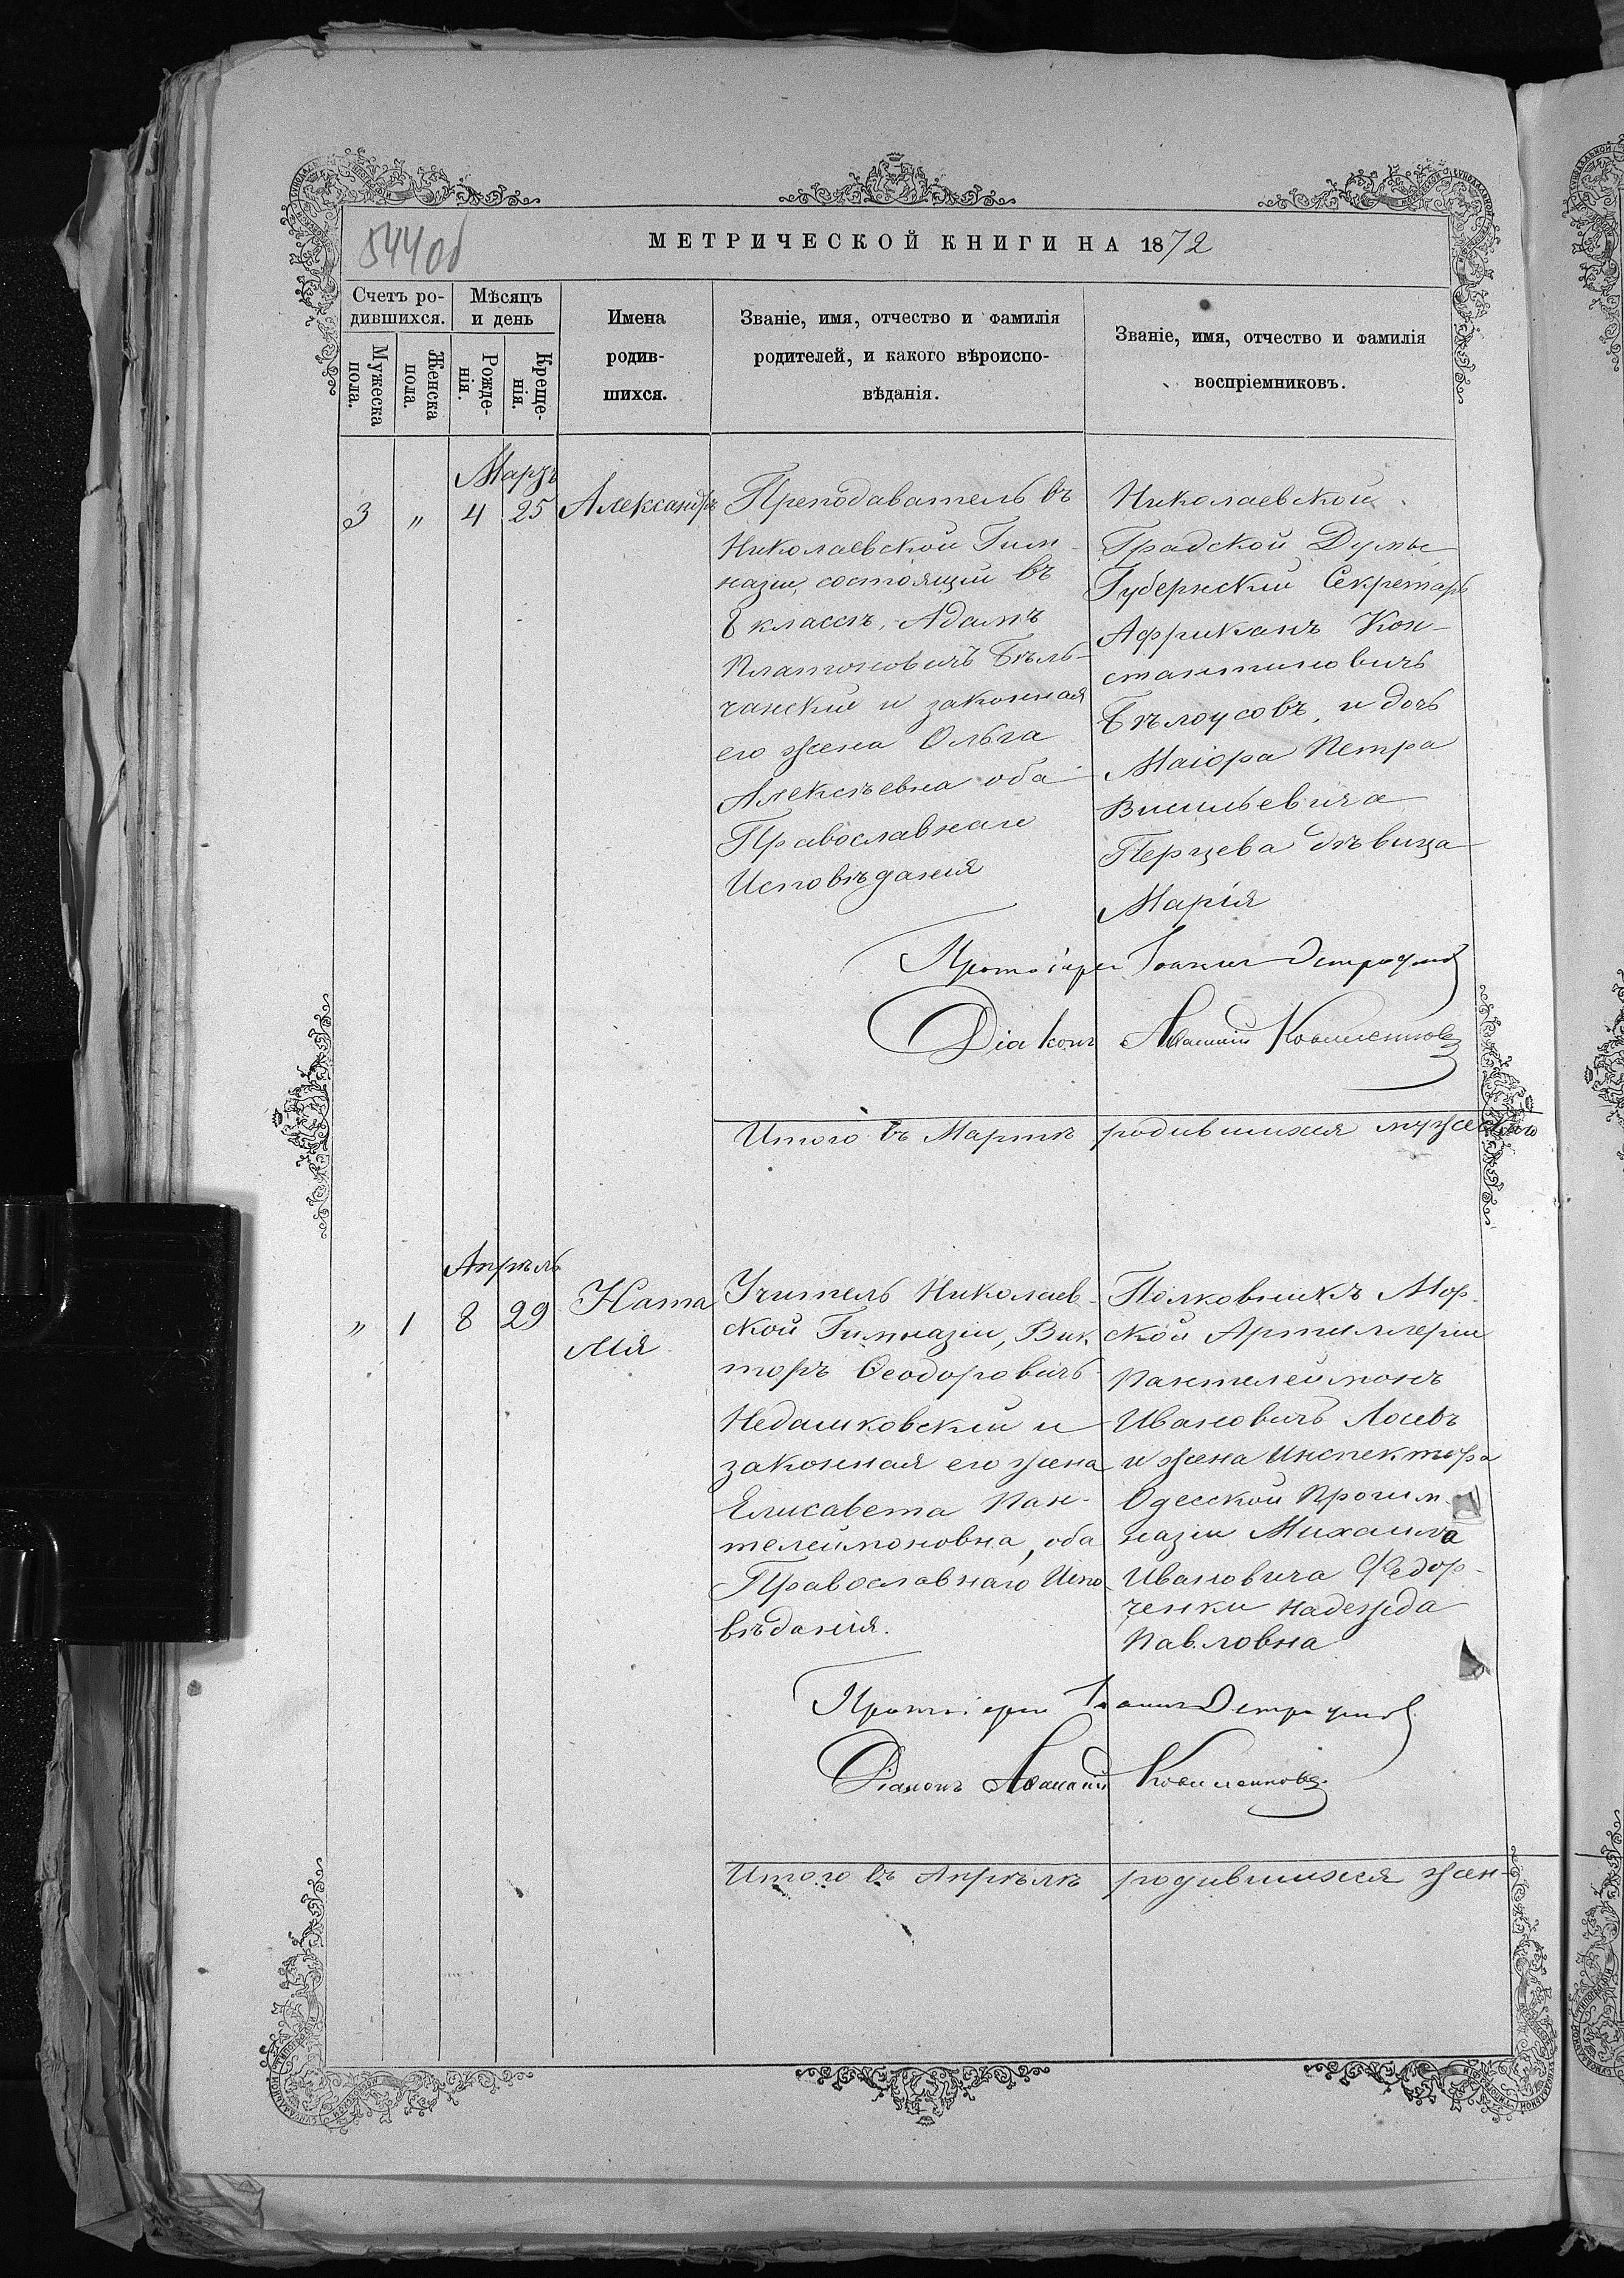 544об
МЕТРИЧЕСКОЙ КНИГИ НА 1872
Счетъ ро-
дившихся.
Мѣсяцъ
и день
Мужеска
пола.
Женска
пола.
Рожде-
нія.
Креще-
нія.
Имена
родив-
шихся.
Званіе, имя, отчество и фамилія
родителей, и какого вѣроиспо-
вѣданія.
Званіе, имя, отчество и фамилія
воспріемниковъ.
Мартъ
3 " 4 25 Александръ
Преподаватель въ
Николаевской Гим-
назіи, состоящій въ
8 классѣ, Адамъ
Платоновичъ Бѣль-
чанскій и законная
его жена Ольга
Алексѣевна оба
Православнаго
Исповѣданія
Николаевской
Градской Думы
Губернскій Секретарь
Африканъ Кон-
стантиновичъ
Бѣлоусовъ, и дочь
Маіора Петра
Васильевича
Перцева дѣвица
Марія
Протоіерей Іоаннъ
Діаконъ Аѳанасій
Итого въ Мартѣ родившихся мужескаго
Апрѣль
" 1 8 29 Ната
лія
Учитель Николаев-
ской Гимназіи, Вик-
торъ Ѳеодоровичъ
Недашковскій и
законная его жена
Елисавета Пан-
телеимоновна, оба
Православнаго Испо-
вѣданія.
Полковникъ Мор-
ской Артиллеріи
Пантелеимонъ
Ивановичъ Лосевъ
и жена Инспектора
Одесской Прогим-
назіи Михаила
Ивановича Федор-
ченки Надежда
Павловна
Протоіерей Іоаннъ
Діаконъ Аѳанасій
Итого въ Апрѣлѣ родившихся жен-